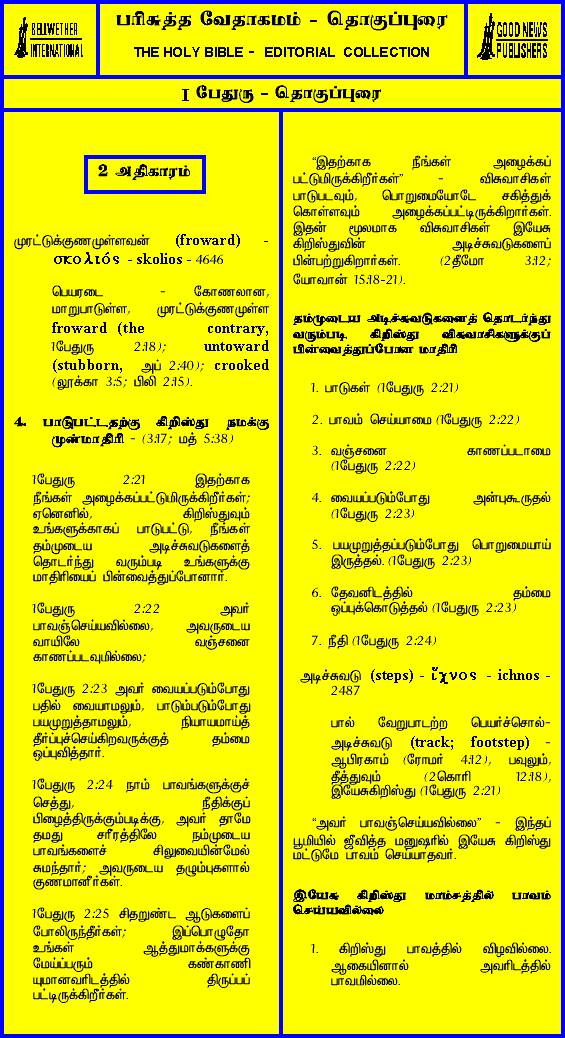 BELLWETHER
INTERNATIONAL
பரிசுத்த வேதாகமம் - தொகுப்புரை
THE HOLY BIBLE - EDITORIAL COLLECTION
GOOD NEWS
PUBLISHERS
I பேதுரு - தொகுப்புரை
2 அதிகாரம்
முரட்டுக்குணமுள்ளவன் (froward) -
σκολιός - skolios - 4646
பெயரடை - கோணலான,
மாறுபாடுள்ள, முரட்டுக்குணமுள்ள
froward (the contrary,
1பேதுரு 2:18); untoward
(stubborn, அப் 2:40); crooked
(லூக்கா 3:5; பிலி 2:15).
4. பாடுபட்டதற்கு கிறிஸ்து நமக்கு
முன்மாதிரி - (3:17; மத் 5:38)
1பேதுரு 2:21 இதற்காக
நீங்கள் அழைக்கப்பட்டுமிருக்கிறீர்கள்;
ஏனெனில், கிறிஸ்துவும்
உங்களுக்காகப் பாடுபட்டு, நீங்கள்
தம்முடைய அடிச்சுவடுகளைத்
தொடர்ந்து வரும்படி உங்களுக்கு
மாதிரியைப் பின்வைத்துப்போனார்.
1பேதுரு 2:22 அவர்
பாவஞ்செய்யவில்லை, அவருடைய
வாயிலே வஞ்சனை
காணப்படவுமில்லை;
1பேதுரு 2:23 அவர் வையப்படும்போது
பதில் வையாமலும், பாடுபடும்போது
பயமுறுத்தாமலும், நியாயமாய்த்
தீர்ப்புச்செய்கிறவருக்குத் தம்மை
ஒப்புவித்தார்.
1பேதுரு 2:24 நாம் பாவங்களுக்குச்
செத்து, நீதிக்குப்
பிழைத்திருக்கும்படிக்கு, அவர் தாமே
தமது சரீரத்திலே நம்முடைய
பாவங்களைச் சிலுவையின்மேல்
சுமந்தார்; அவருடைய தழும்புகளால்
குணமானீர்கள்.
1பேதுரு 2:25 சிதறுண்ட ஆடுகளைப்
போலிருந்தீர்கள்; இப்பொழுதோ
உங்கள் ஆத்துமாக்களுக்கு
மேய்ப்பரும் கண்காணி
யுமானவரிடத்தில் திருப்பப்
பட்டிருக்கிறீர்கள்.
“இதற்காக நீங்கள் அழைக்கப்
பட்டுமிருக்கிறீர்கள்” - விசுவாசிகள்
பாடுபடவும், பொறுமையோடே சகித்துக்
கொள்ளவும் அழைக்கப்பட்டிருக்கிறார்கள்.
இதன் மூலமாக விசுவாசிகள் இயேசு
கிறிஸ்துவின் அடிச்சுவடுகளைப்
பின்பற்றுகிறார்கள். (2தீமோ 3:12;
யோவான் 15:18-21).
தம்முடைய அடிச்சுவடுகளைத் தொடர்ந்து
வரும்படி, கிறிஸ்து விசுவாசிகளுக்குப்
பின்வைத்துப்போன மாதிரி
1. பாடுகள் (1பேதுரு 2:21)
2. பாவம் செய்யாமை (1பேதுரு 2:22)
3. வஞ்சனை காணப்படாமை
(1பேதுரு 2:22)
4. வையப்படும்போது அன்புகூருதல்
(1பேதுரு 2:23)
5. பயமுறுத்தப்படும்போது பொறுமையாய்
இருத்தல். (1பேதுரு 2:23)
6. தேவனிடத்தில் தம்மை
ஒப்புக்கொடுத்தல் (1பேதுரு 2:23)
7. நீதி (1பேதுரு 2:24)
அடிச்சுவடு (steps) - ἴχνος - ichnos -
2487
பால் வேறுபாடற்ற பெயர்ச்சொல்-
அடிச்சுவடு (track; footstep) -
ஆபிரகாம் (ரோமர் 4:12), பவுலும்,
தீத்துவும் (2கொரி 12:18),
இயேசுகிறிஸ்து (1பேதுரு 2:21)
“அவர் பாவஞ்செய்யவில்லை” - இந்தப்
பூமியில் ஜீவித்த மனுஷரில் இயேசு கிறிஸ்து
மட்டுமே பாவம் செய்யாதவர்.
இயேசு கிறிஸ்து மாம்சத்தில் பாவம்
செய்யவில்லை
1. கிறிஸ்து பாவத்தில் விழவில்லை.
ஆகையினால் அவரிடத்தில்
பாவமில்லை.